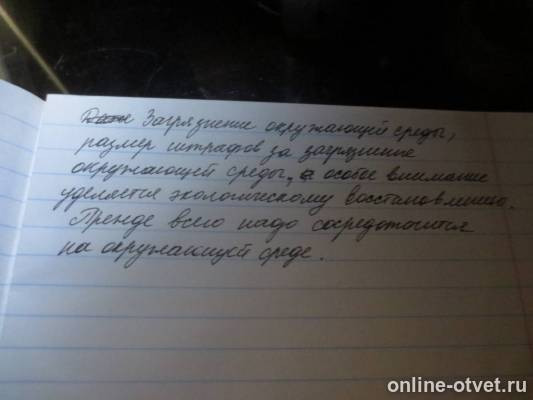 Загрязнение окружающей среды,
размер штрафов за загрязнение
окружающей среды, а особое внимание
уделяется экологическому восстановлению.
Прежде всего надо сосредоточится
на окружающей среде.
online-otvet.ru